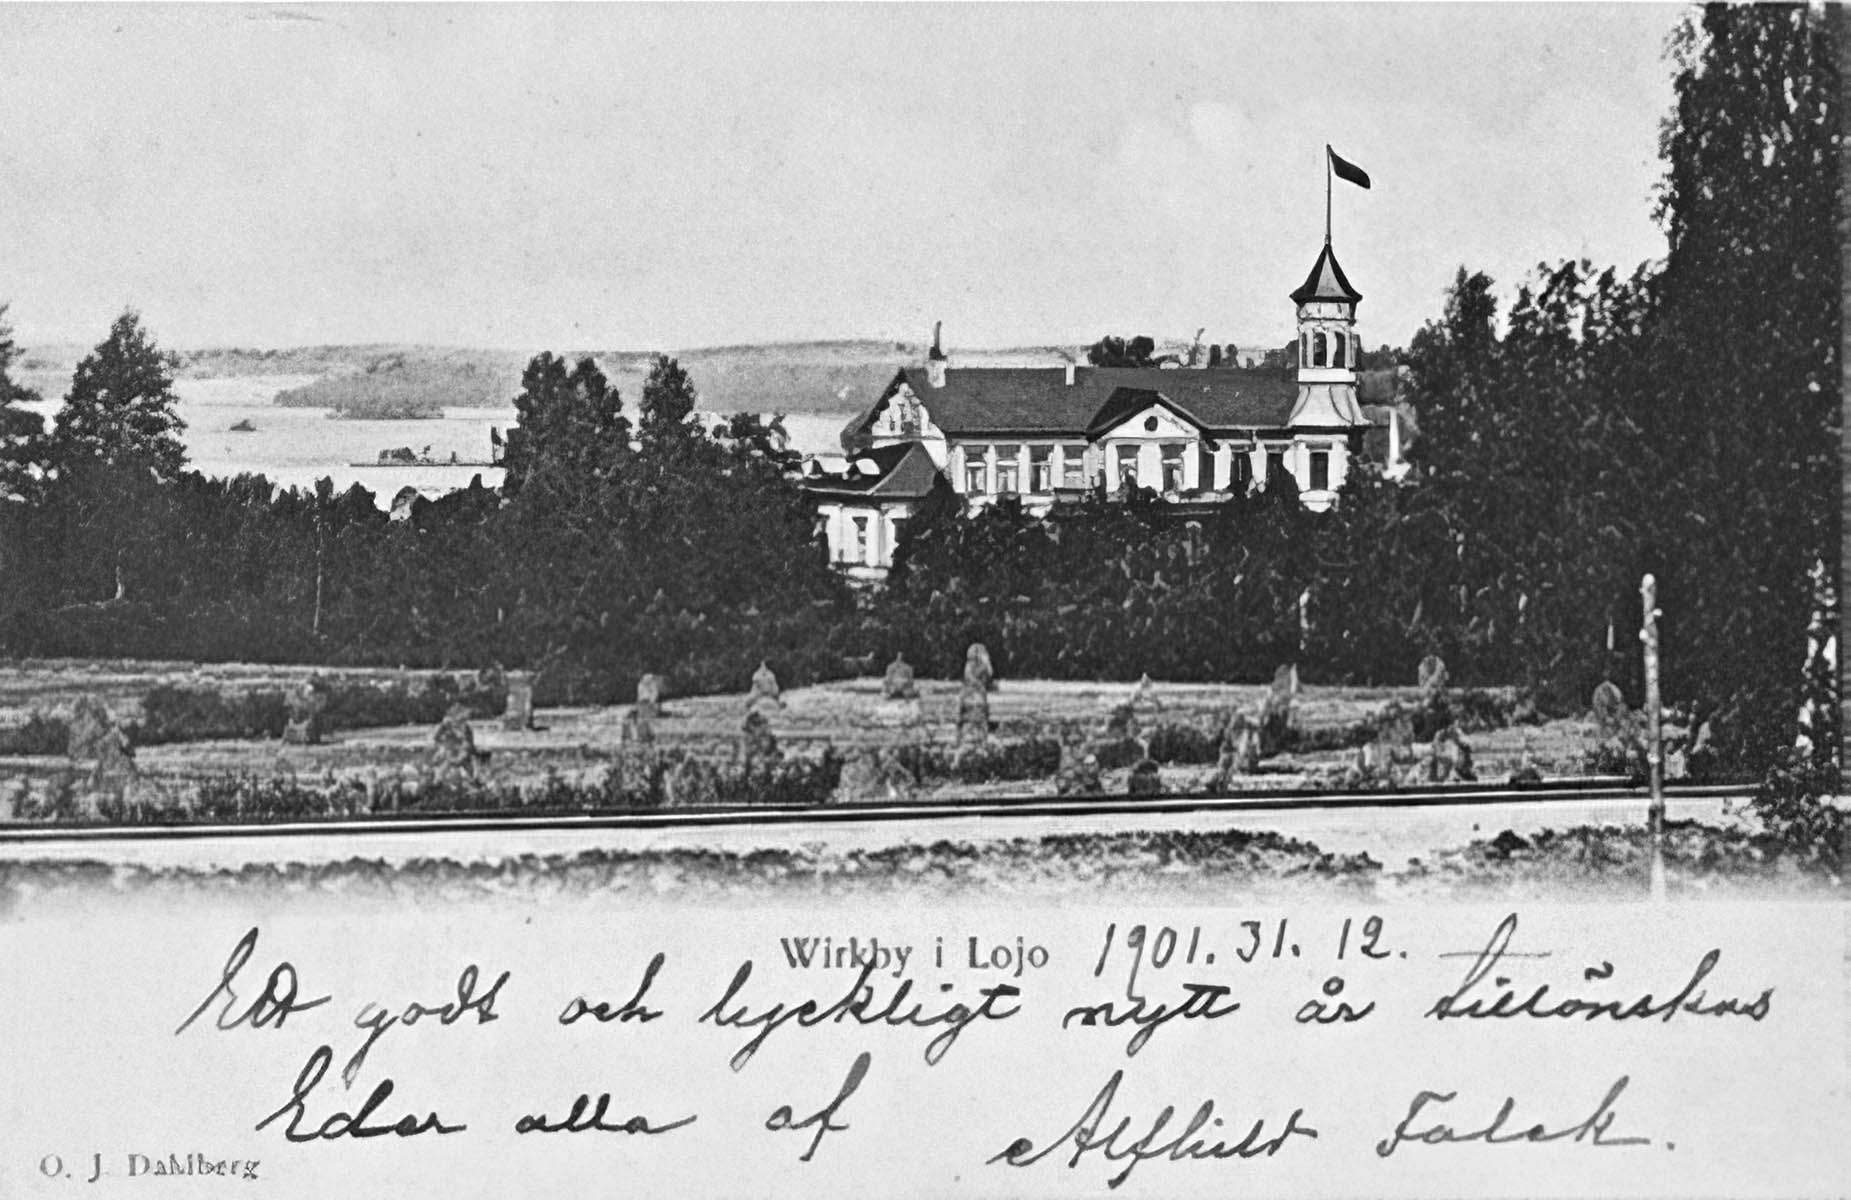 Wirkby i Lojo 1901. 31. 12.
Ett godt och lyckligt nytt år tillönskas
Eder alla af Alfhild Falck.
O. J. Dahlberg